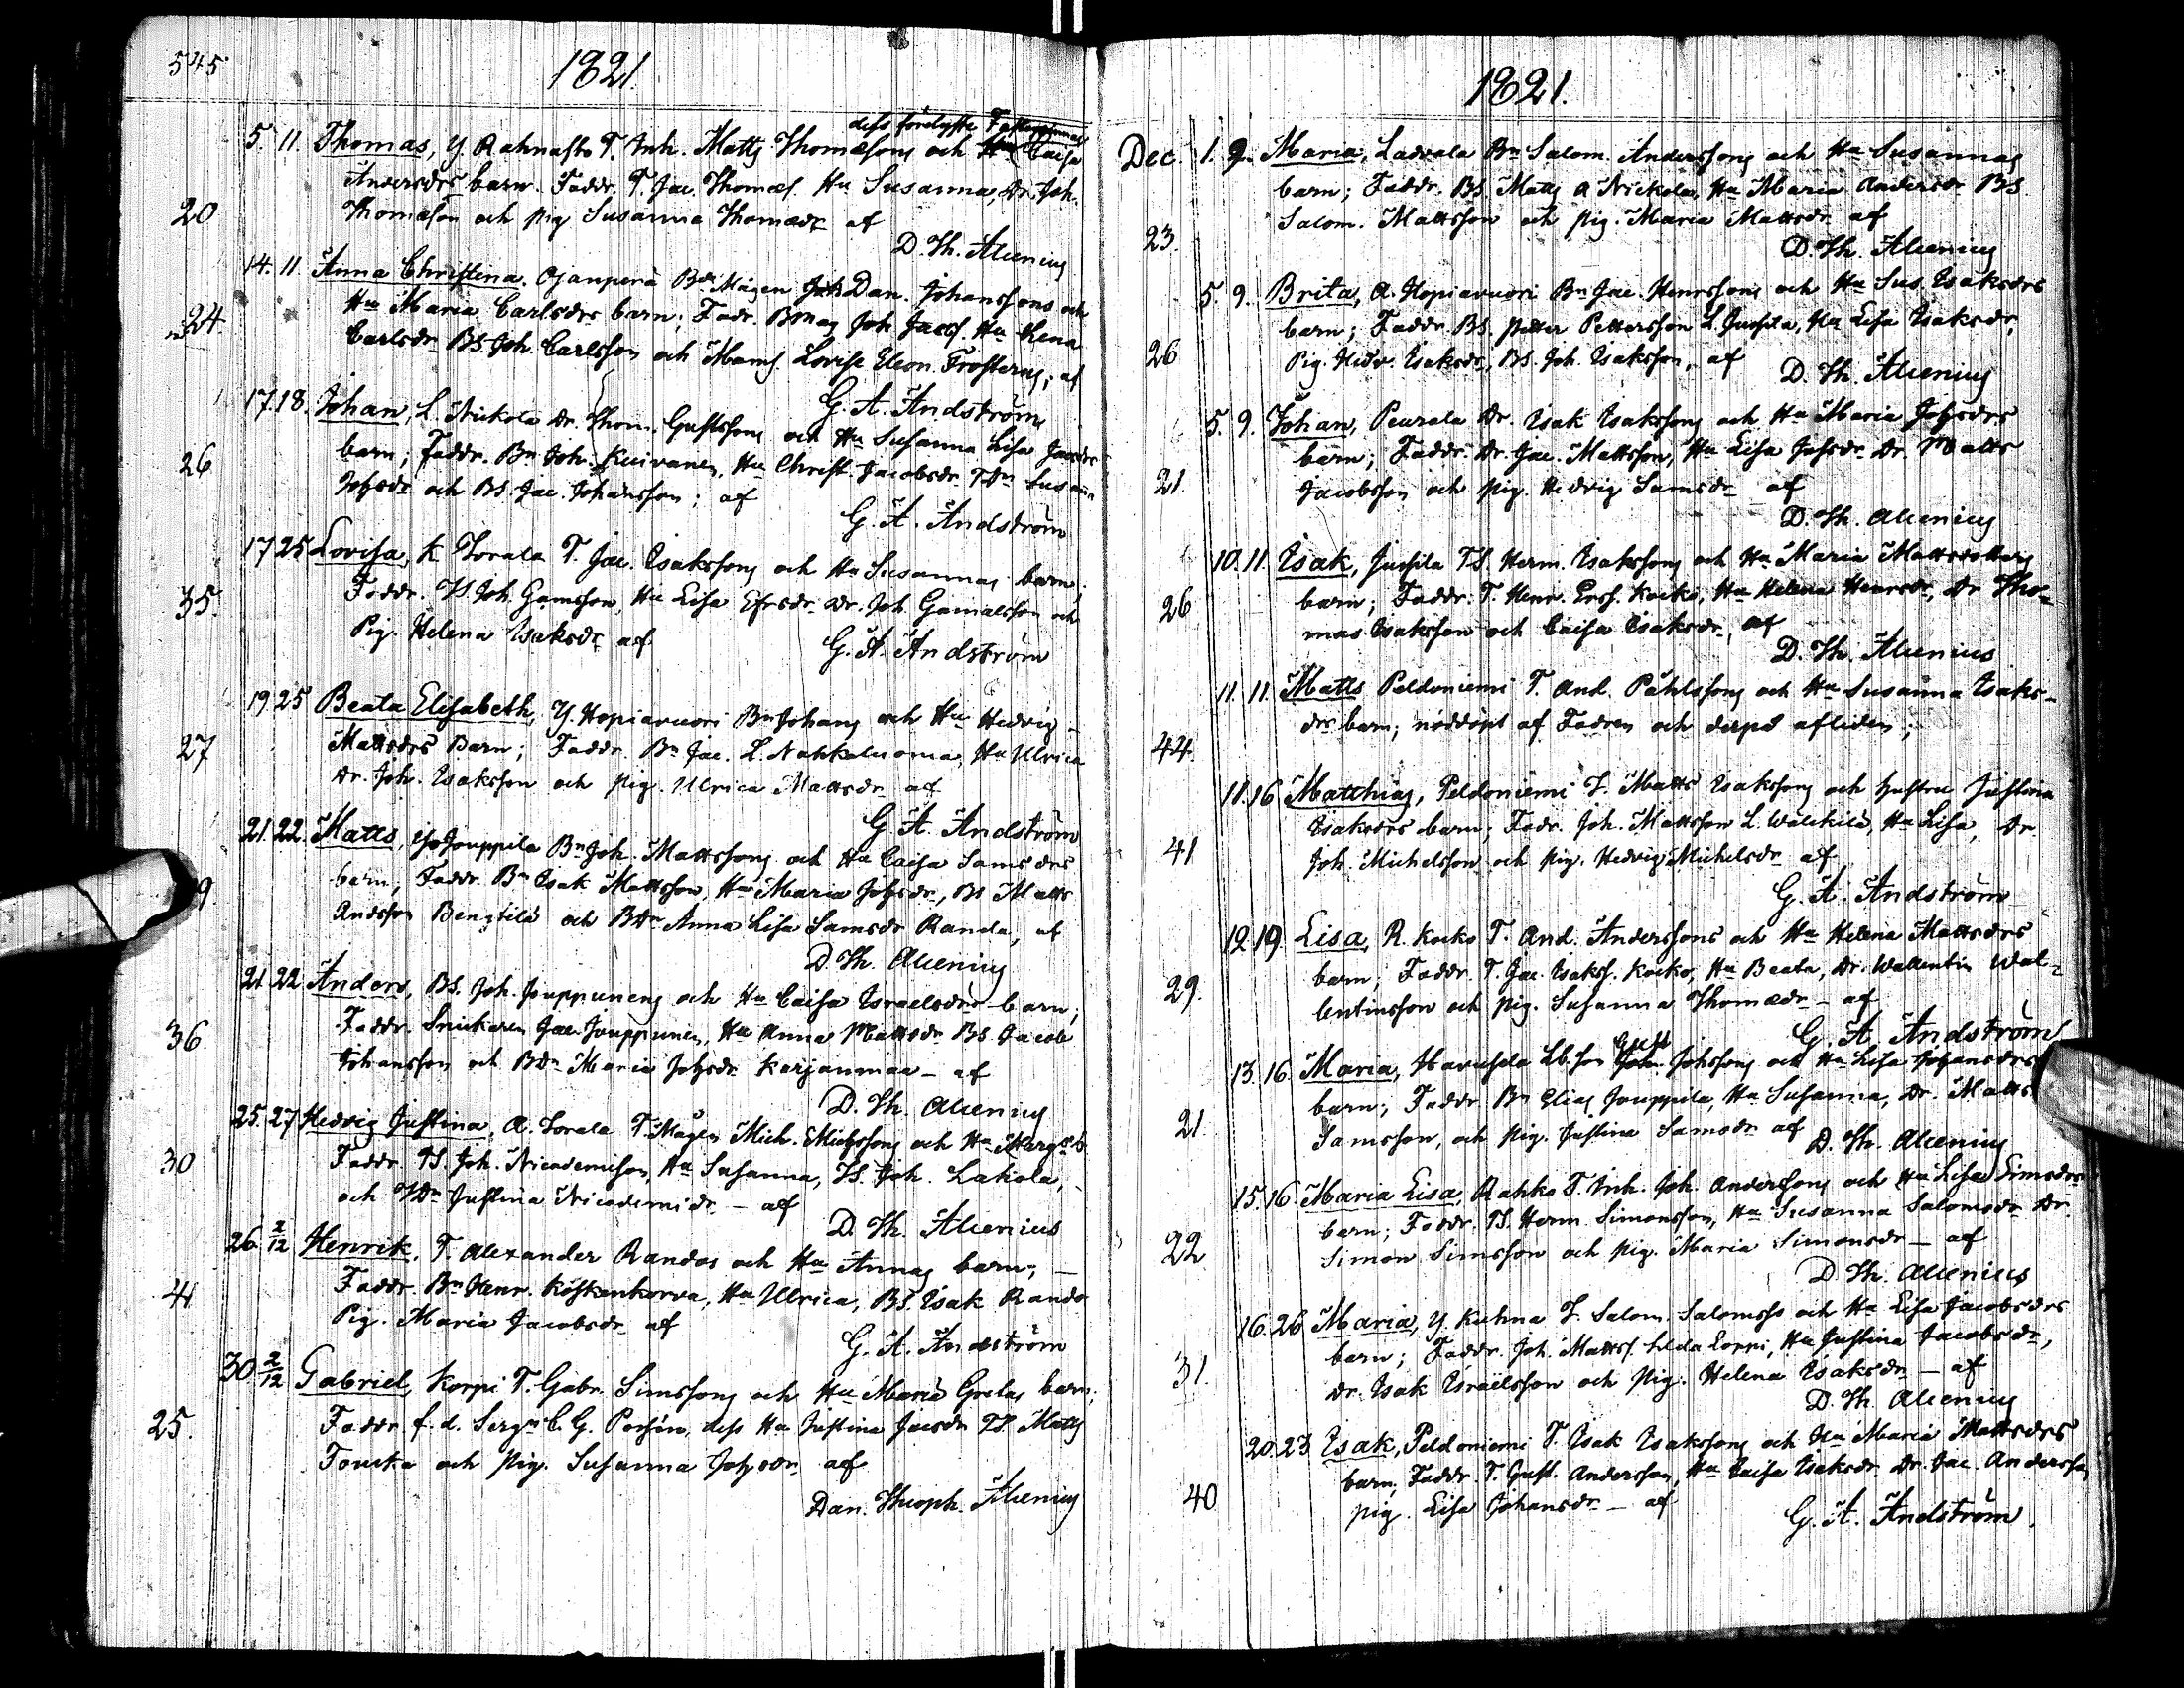 545
1821.
5. 11. Thomas, Y. Rahnasto T. Inh. Matts Thomæsons och dess förelyste Fästeqvinnas Caisa
Andersdrs barn. Faddr. T. Jac. Thomæs. Hu Susanna, Dr. Joh.
20 Thomæson och pig Susanna Thomædr af
D. Th. Alcenius
14. 11 Anna Christina. Ojanperä Bde Mågen Dan. Johanssons och
24 Hu Maria Carlsdrs barn; Fadr. Bmåg Joh. Jacobs. Hu Lena
Carlsdr BS. Joh. Carlsson och Mams. Lovise Eleon. Frosterus; af
G. A. Andström
17. 18. Johan, L. Nickola Dr. Thom. Gustafssons och Hu Susanna Lisa Jacobdrs
26 barn; Faddr. Bn Joh. Kuivanen, Hu Christ. Jacobsdr. TDr Susanna
Johsdr och BS. Jac. Johansson; af
G. A. Andström
17 25 Lovisa, K Torala T. Jac. Isakssons och Hu Susannas barn;
35. Faddr. TS. Joh. Gamsson, Hu Lisa Efrsdr. Dr. Joh. Gamalsson och
Pig. Helena Isaksdr af
G. A. Andström
19 25 Beata Elisabeth, Y. Hopiavuori Bn Johans och Hu Hedvig
27 Mattsdrs Barn; Faddr. Bn Jac. L. Nahkaluoma, Hu Ulrica
Dr. Joh. Isaksson och pig. Ulrica Mattsdr af
G. A. Andström
21. 22. Matts, Jouppila Bn Joh. Mattssons och Hu Caisa Samsdrs
9. barn; Faddr. Bn Isak Mattsson, Hu Maria Johsdr, BS Matts
Andsson Bengtilä och BDr Anna Lisa Samsdr Randa, af
D. Th. Alcenius
21. 22 Anders, BS. Joh. Jouppunens och Hu Caisa Israelsdrs barn;
36 Faddr. Snickaren Jac. Jouppunen, Hu Anna Mattsdr BS. Jacob
Johansson och BDr Maria Johsdr Karjanmaa – af
D. Th. Alcenius
25. 27 Hedvig Justina, A. Torala T.Mågen Mich. Michssons och Hu Margr. b.
30 Faddr. TS. Joh. Nicodemisson, Hu Susanna, TS. Joh. Lakola,
och TDr Justina Nicodemidr – af
D. Th. Alcenius
26 2/12 Henrik, T. Alexander Randas och Hu Annas barn;
41 Faddr. Bn Henr. Koskenkorva, Hu Ulrica, BS. Isak Randa
Pig. Maria Jacobsdr af
G. A. Andström
30 2/12 Gabriel, Korpi T. Gabr. Simssons och Hu Maria Gretas barn;
25. Faddr f. d. Sergn C. G. Porsén, dess Hu Justina Jacsdr TS. Matts
Fouska och pig. Susanna Johsdr af
Dan. Theoph. Alcenius
1821.
Dec. 1. 2. Maria, Ladvala Bn Salom. Anderssons och Hu Susannas
barn; Faddr. BS. Matts A Nickola, Hu Maria Andersdr BS
23. Salom. Mattsson och pig. Maria Mattsdr af
D. Th. Alcenius
5. 9. Brita, A. Hopiavuori Bn Jac. Henrssons och Hu Sus. Isaksdrs
barn; Faddr. BS. Petter Pettersson L. Jussila, Hu Lisa Isaksdr,
26 Pig. Hedv. Isaksdr, BS. Joh. Isaksson, af
D. Th. Alcenius
5. 9. Johan, Peurala Dr. Isak Isakssons och Hu Maria Johsdrs
barn; Faddr. Dr. Jac. Mattsson, Hu Lisa Johsdr Dr. Matts
21. Jacobsson och pig. Hedvig Samsdr af
D. Th. Alcenius
10. 11. Isak, Jussila TS. Herm. Isakssons och Hu Maria Mattsdotters
26 barn; Faddr. T. Henr. Ersf. Kocko, Hu Helena Henrsdr, Dr Tho-
mas Isaksson och Caisa Isaksdr, af
D. Th. Alcenius
11. 11. Matts Peldoniemi T. And. Påhlssons och Hu Susanna Isaks-
44. drs barn; nöddöpt af Fadren och derpå afliden;
11. 16 Matthias, Peldoniemi T. Matts Isakssons och hustru Justina
Isaksdrs barn; Fadr. Joh. Mattsson L. Wälikilä, Hu Lisa, Dr.
41 Joh. Michelsson och pig. Hedvig Michelsdr af
G. A. Andström
12. 19. Lisa, R. Kocko T. And. Anderssons och Hu Helena Mattsdrs
29. barn; Faddr. T. Jac. Isakss. Kocko, Hu Beata, Dr. Wallentin Wal-
lentinsson och pig. Susanna Thomædr – af
G. A. Andström
13. 16. Maria, Havusela Lb.son Gust Johssons och Hu Lisa Johansdrs
barn; Faddr. Bn Elias Jouppila, Hu Susanna, Dr. Matts
21. Samsson, och pig. Justina Samsdr af D. Th. Alcenius
15. 16 Maria Lisa, Rahko T. Inh. Joh. Anderssons och Hu Lisa Simsdrs
barn; Faddr. TS. Herm. Simonsson, Hu Susanna Salomsdr Dr.
22 Simon Simsson och pig. Maria Simonsdr – af
D. Th. Alcenius
16. 26 Maria, Y. Kuhna T. Salom. Salomss och Hu Lisa Jacobsdrs
31. barn; Faddr. Joh. Mattss. Loppi, Hu Justina Jacobsdr,
Dr. Isak Israelsson och pig. Helena Isaksdr – af
D. Th Alcenius
20. 23 Isak, Peldoniemi T. Isak Isakssons och Hu Maria Mattsdrs
barn, Faddr. T. Gust. Andersson, Hu Caisa Isaksdr Dr. Jac. Andersson
40 pig. Lisa Johansdr – af
G. A. Andström.